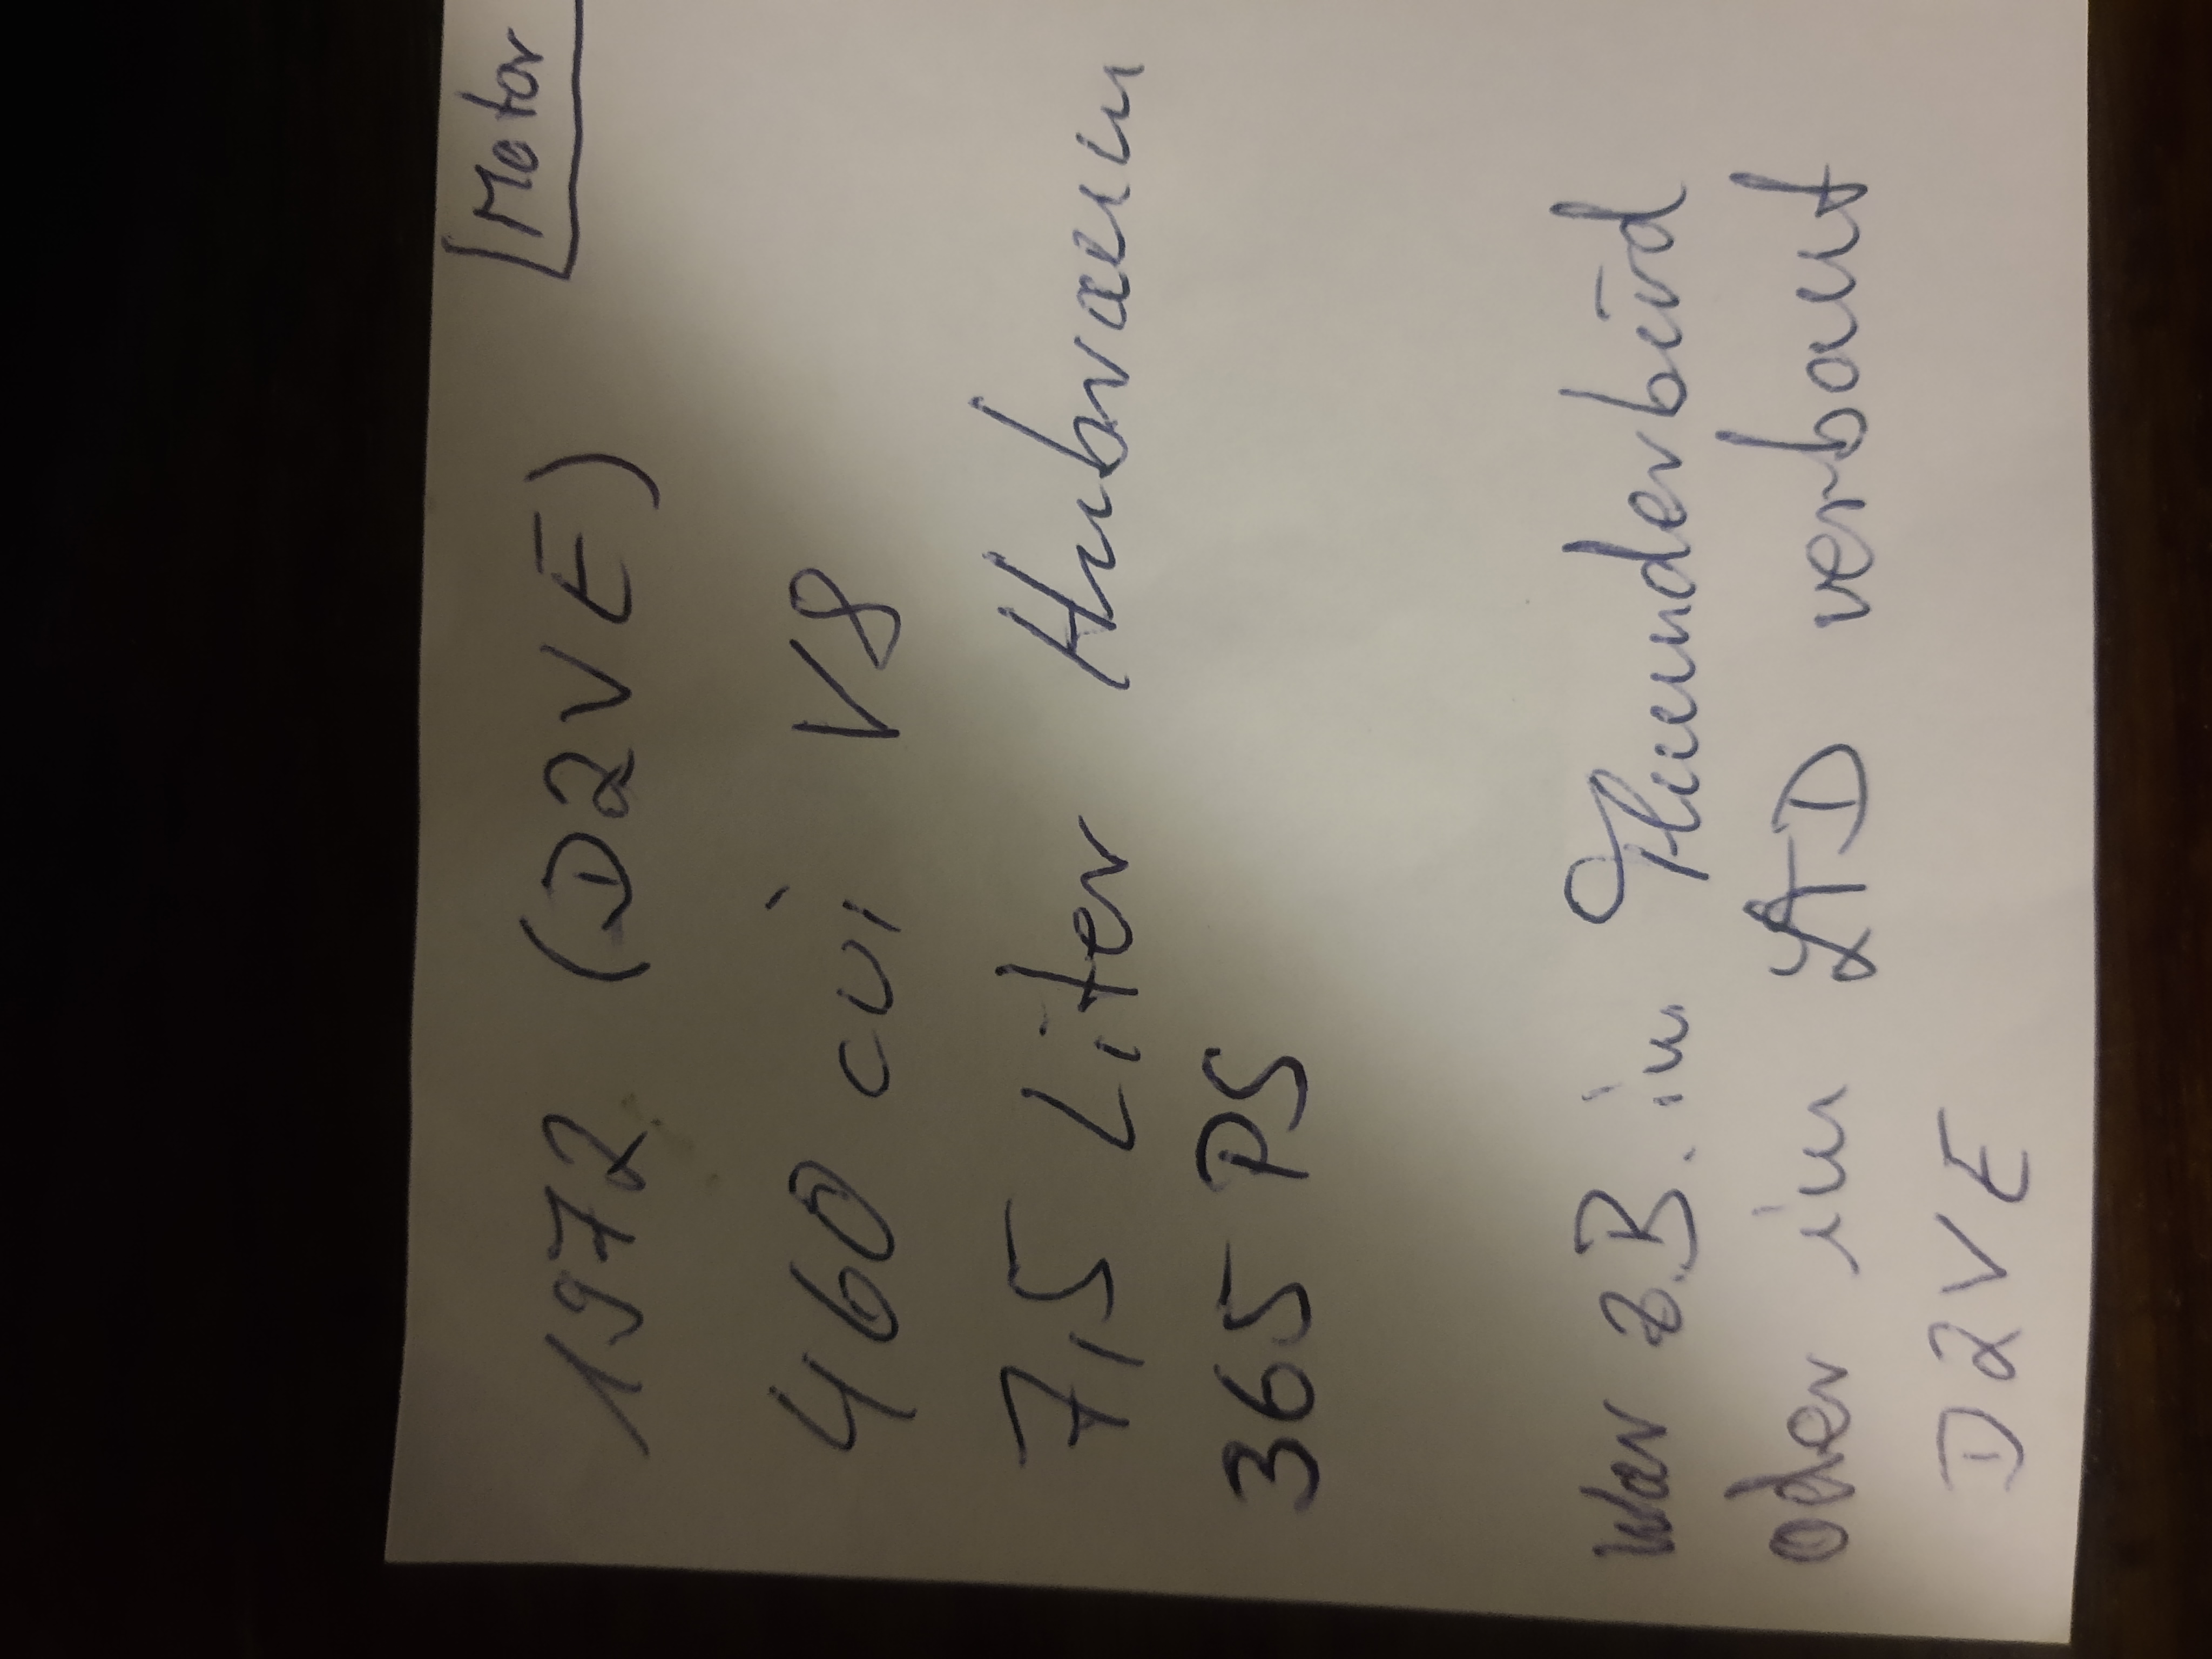 Motor
1972 (D2VE)
460 cui V8
7,5 Liter Hubraum
365 PS
War z.B. in Thunderbird
oder im LTD verbaut
D2VE